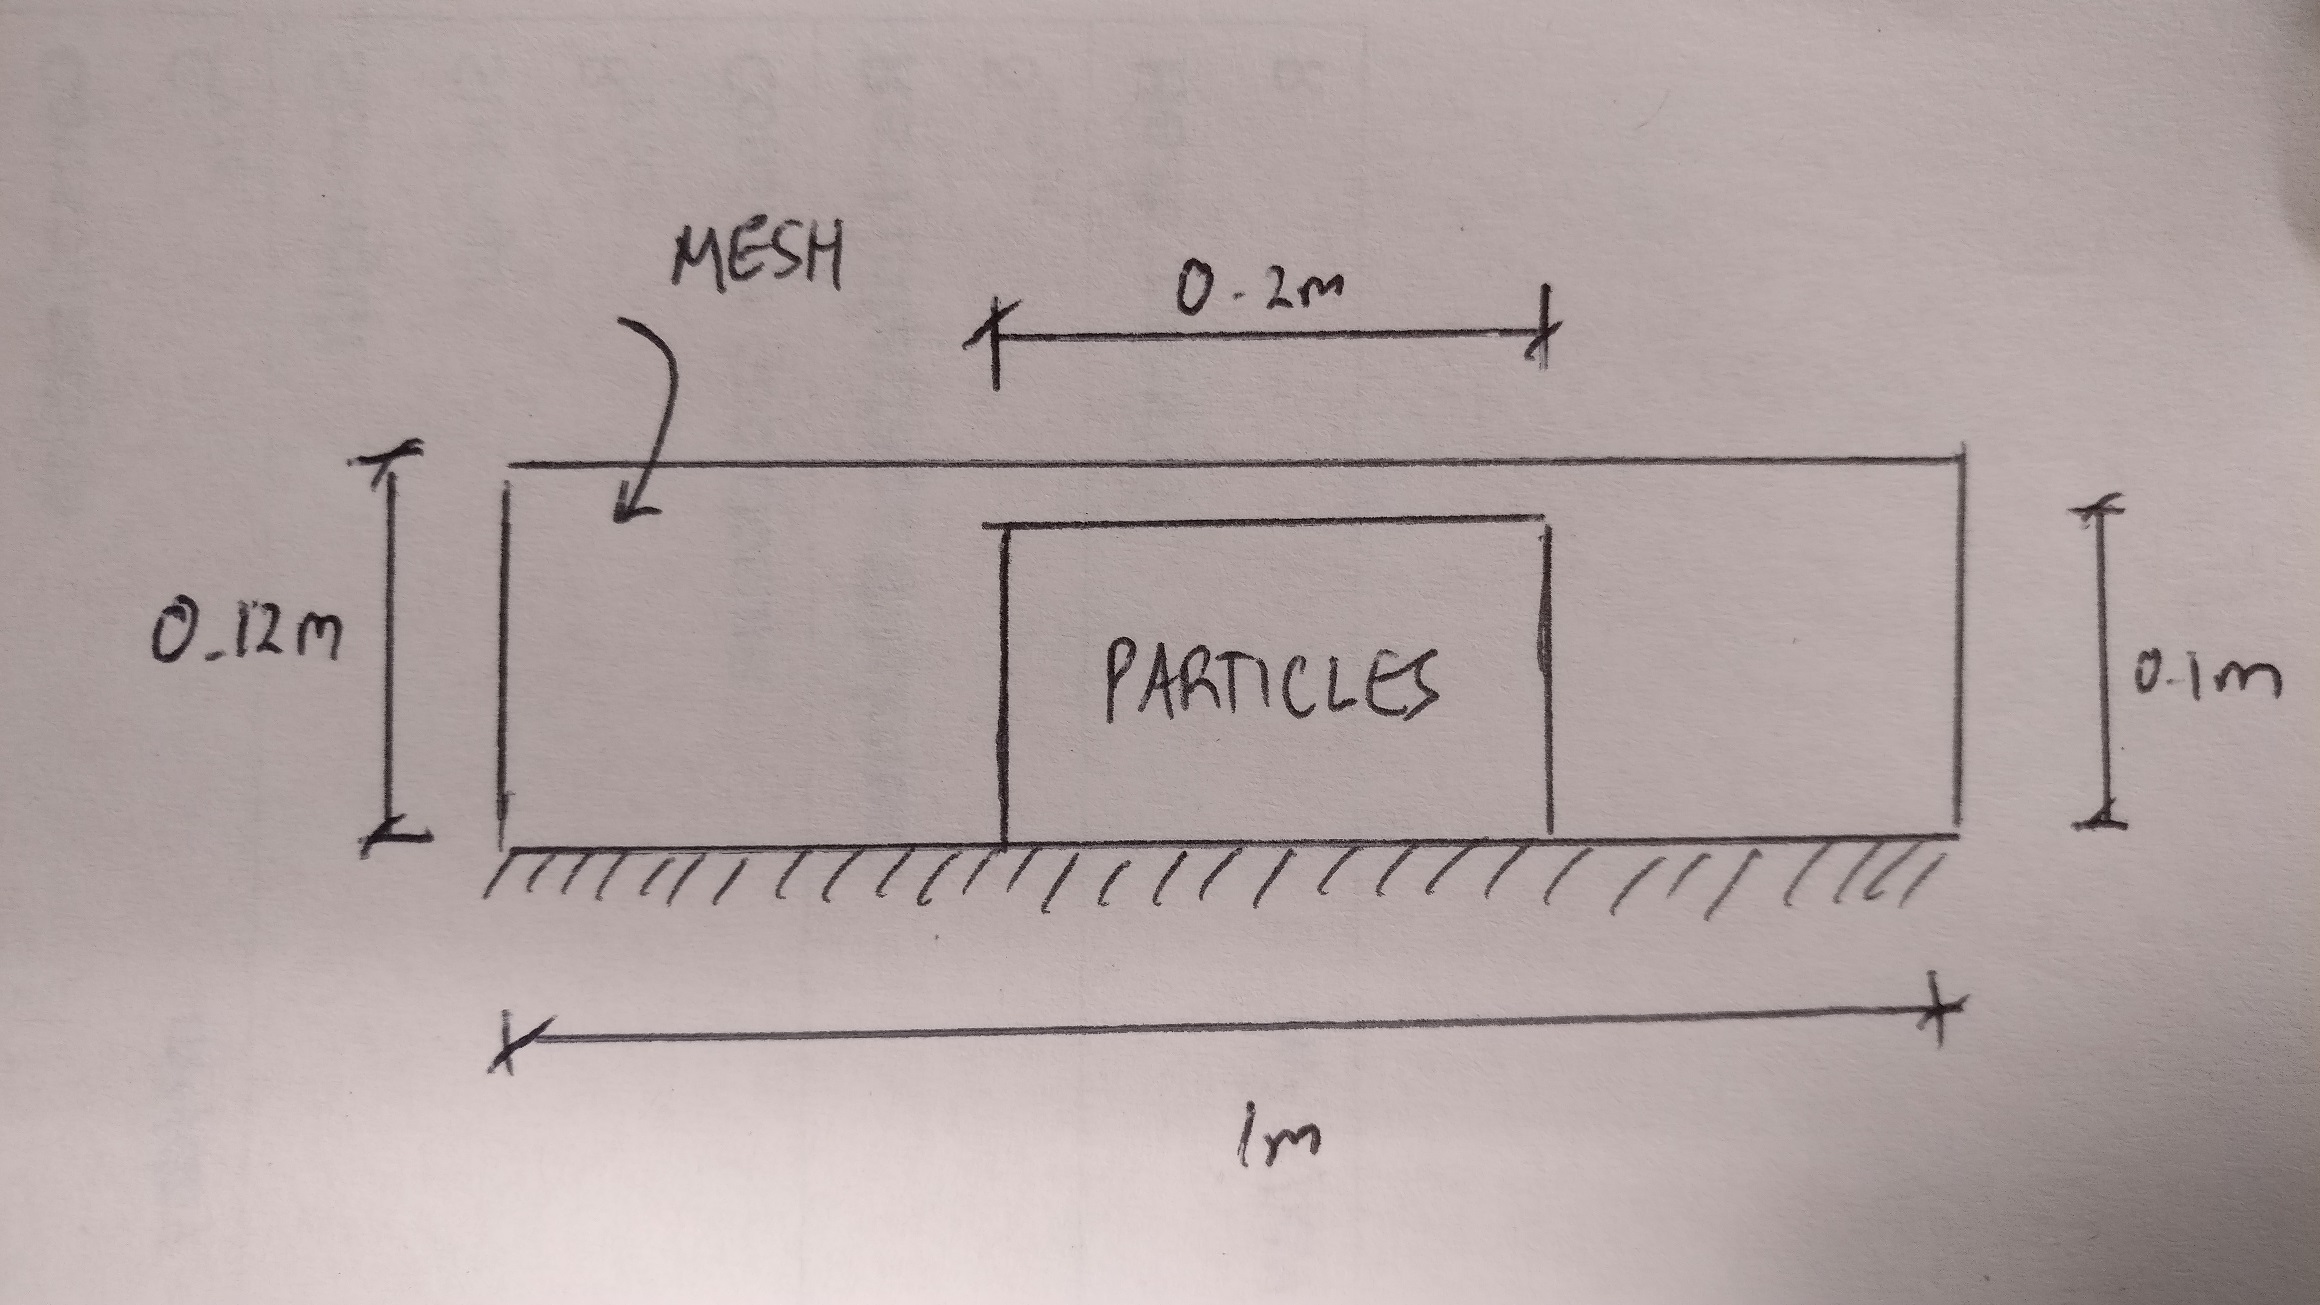 MESH
0.2m
0.12m
PARTICLES
0.1m
1m